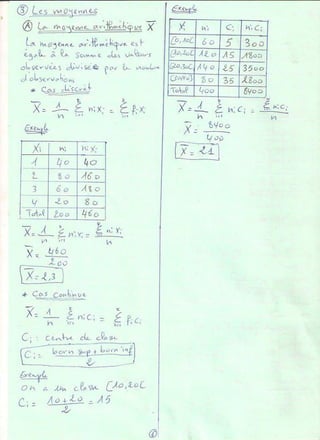 ③ Les moyennes
Ⓐ La moyenne arithmétique X̄
La moyenne arithmétique est
égale à la somme des valeurs
observées divisée par le nombre
d'observations
* Cas discret
X̄ = 1/n Σ ni xi = Σ fi xi
Exemple
Xi ni ni xi
1 40 40
2 80 160
3 60 180
4 20 80
Total 200 460
X̄ = 1/n Σ ni xi = Σ ni xi / n
X̄ = 460 / 200
X̄ = 2,3
* Cas continue
X̄ = 1/n Σ ni ci = Σ fi ci
Ci : centre de classe
Ci = born sup + born inf / 2
Exemple
on a une classe [10,20[
Ci = 10+20 / 2 = 15
Exemple
Xi ni Ci ni Ci
[0,10[ 60 5 300
[10,20[ 120 15 1800
[20,30[ 140 25 3500
80 35 2800
Total 400 8400
X̄ = 1/n Σ ni ci = Σ ni ci / n
X̄ = 8400 / 400
X̄ = 21